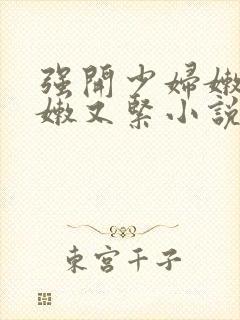 强開少婦嫩
嫩又緊小說
東宮千子